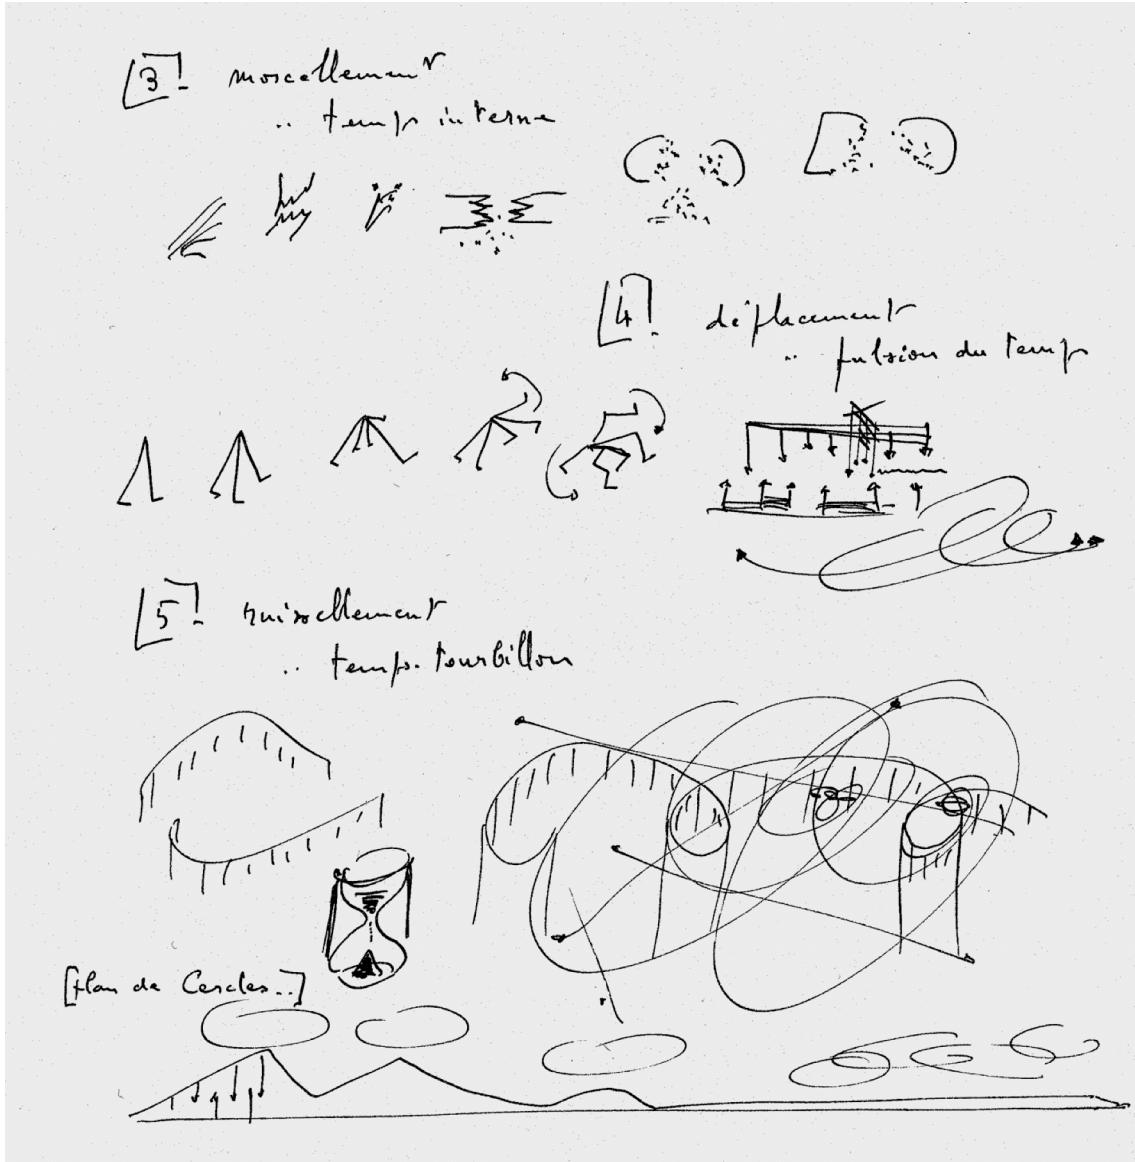 [3]. morcellement
.. temps interne
[4]. déplacement
.. pulsion du temps
[5]. ruissellement
.. temps-tourbillon
[plan de Cercles..]